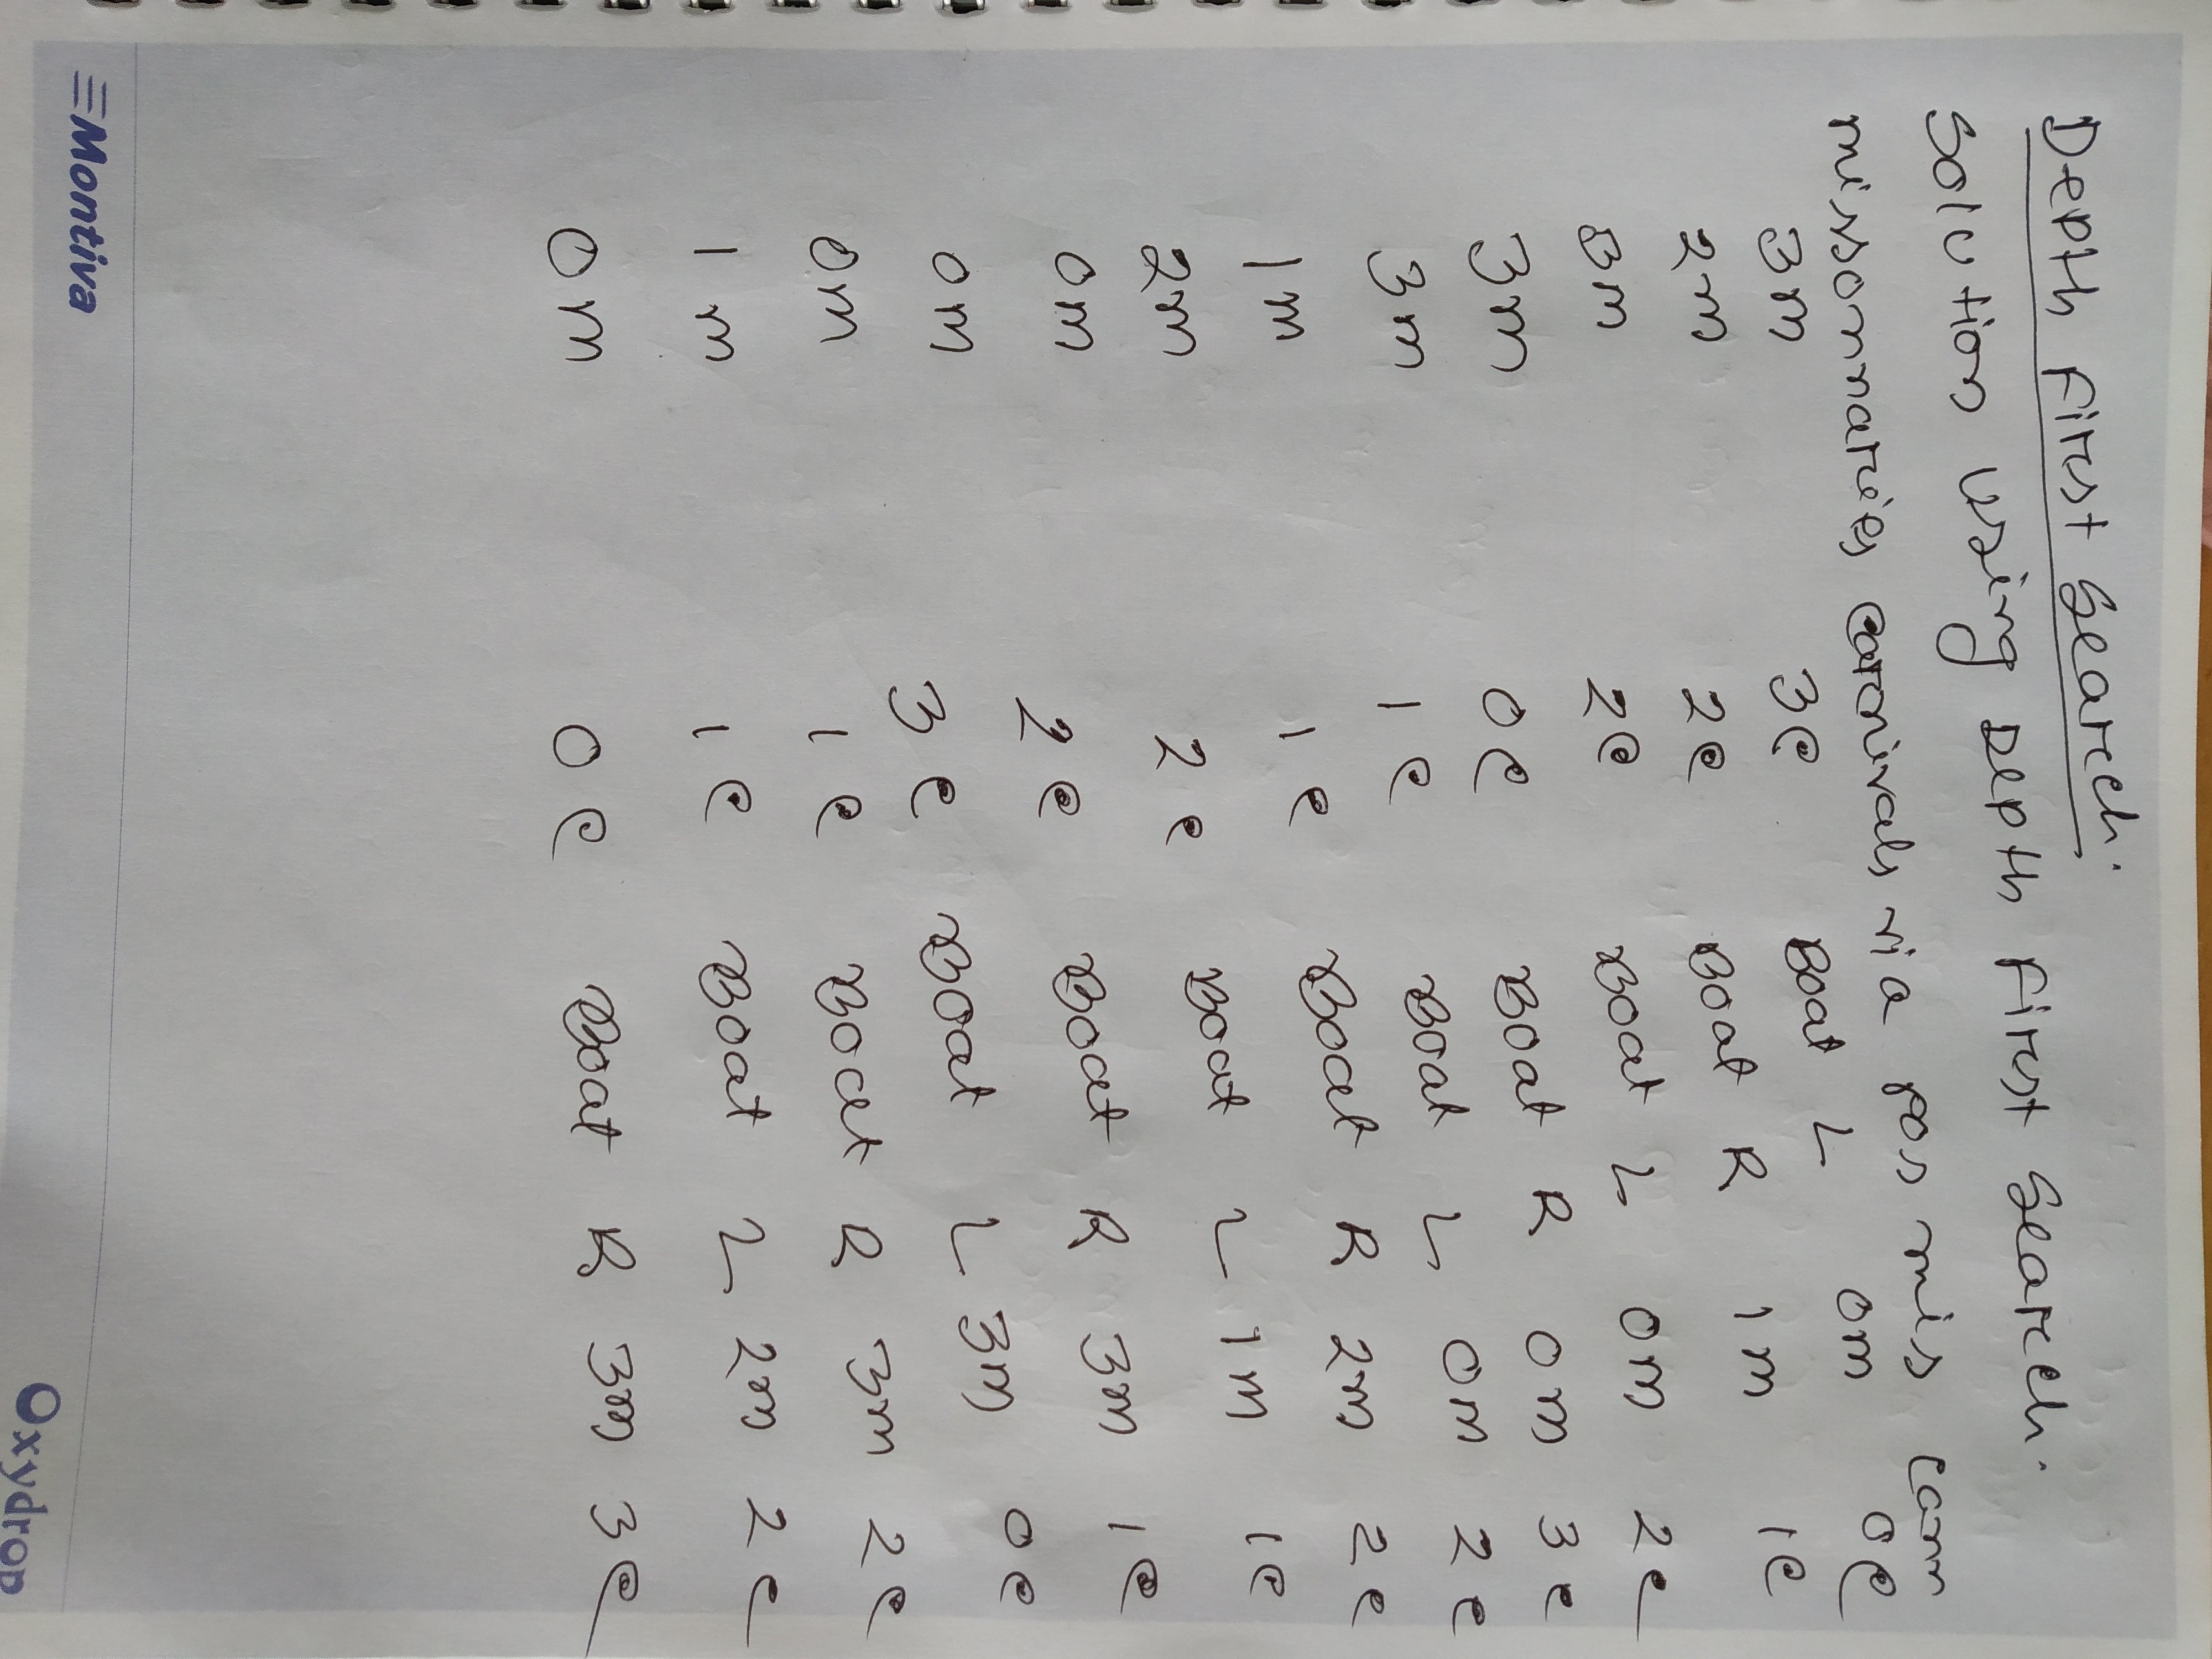 Depth First Search.
Solution using Depth First Search.
missonnaries carnivals via pos mis cann
3m 3c Boat L 0m 0c
2m 2c Boat R 1m 1c
3m 2c Boat L 0m 2c
3m 0c Boat R 0m 3c
3m 1c Boat L 0m 2c
1m 1c Boat R 2m 2c
2m 2c Boat L 1m 1c
0m 2c Boat R 3m 1c
0m 3c Boat L 3m 0c
0m 1c Boat R 3m 2c
1m 1c Boat L 2m 2c
0m 0c Boat R 3m 3c
Montiva
Oxydrop